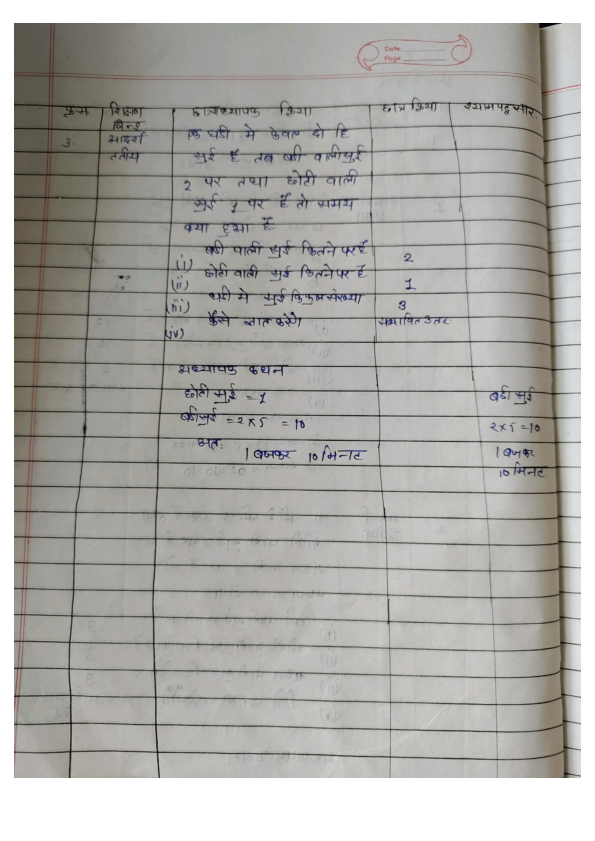 Date
Page
क्रम शिक्षण बिन्दु छात्राध्यापक क्रिया छात्र क्रिया श्यामपट्ट सार
3. आदर्श तृतीय
कि घडी मे केवल दो हि
सुई है तब बडी वाली सुई
2 पर तथा छोटी वाली
सुई 1 पर है तो समय
क्या हुआ है
(i) बडी वाली सुई कितने पर है 2
(ii) छोटी वाली सुई कितने पर है 1
(iii) घडी मे सुई कि कुल संख्या 3
(iv) कैसे ज्ञात करेंगे सम्भावित उतर
अध्यापक कथन
छोटी सुई = 1 बडी सुई
बडी सुई = 2 x 5 = 10 2 x 5 = 10
अत: 1 बजकर 10 मिनट 1 बजकर
10 मिनट